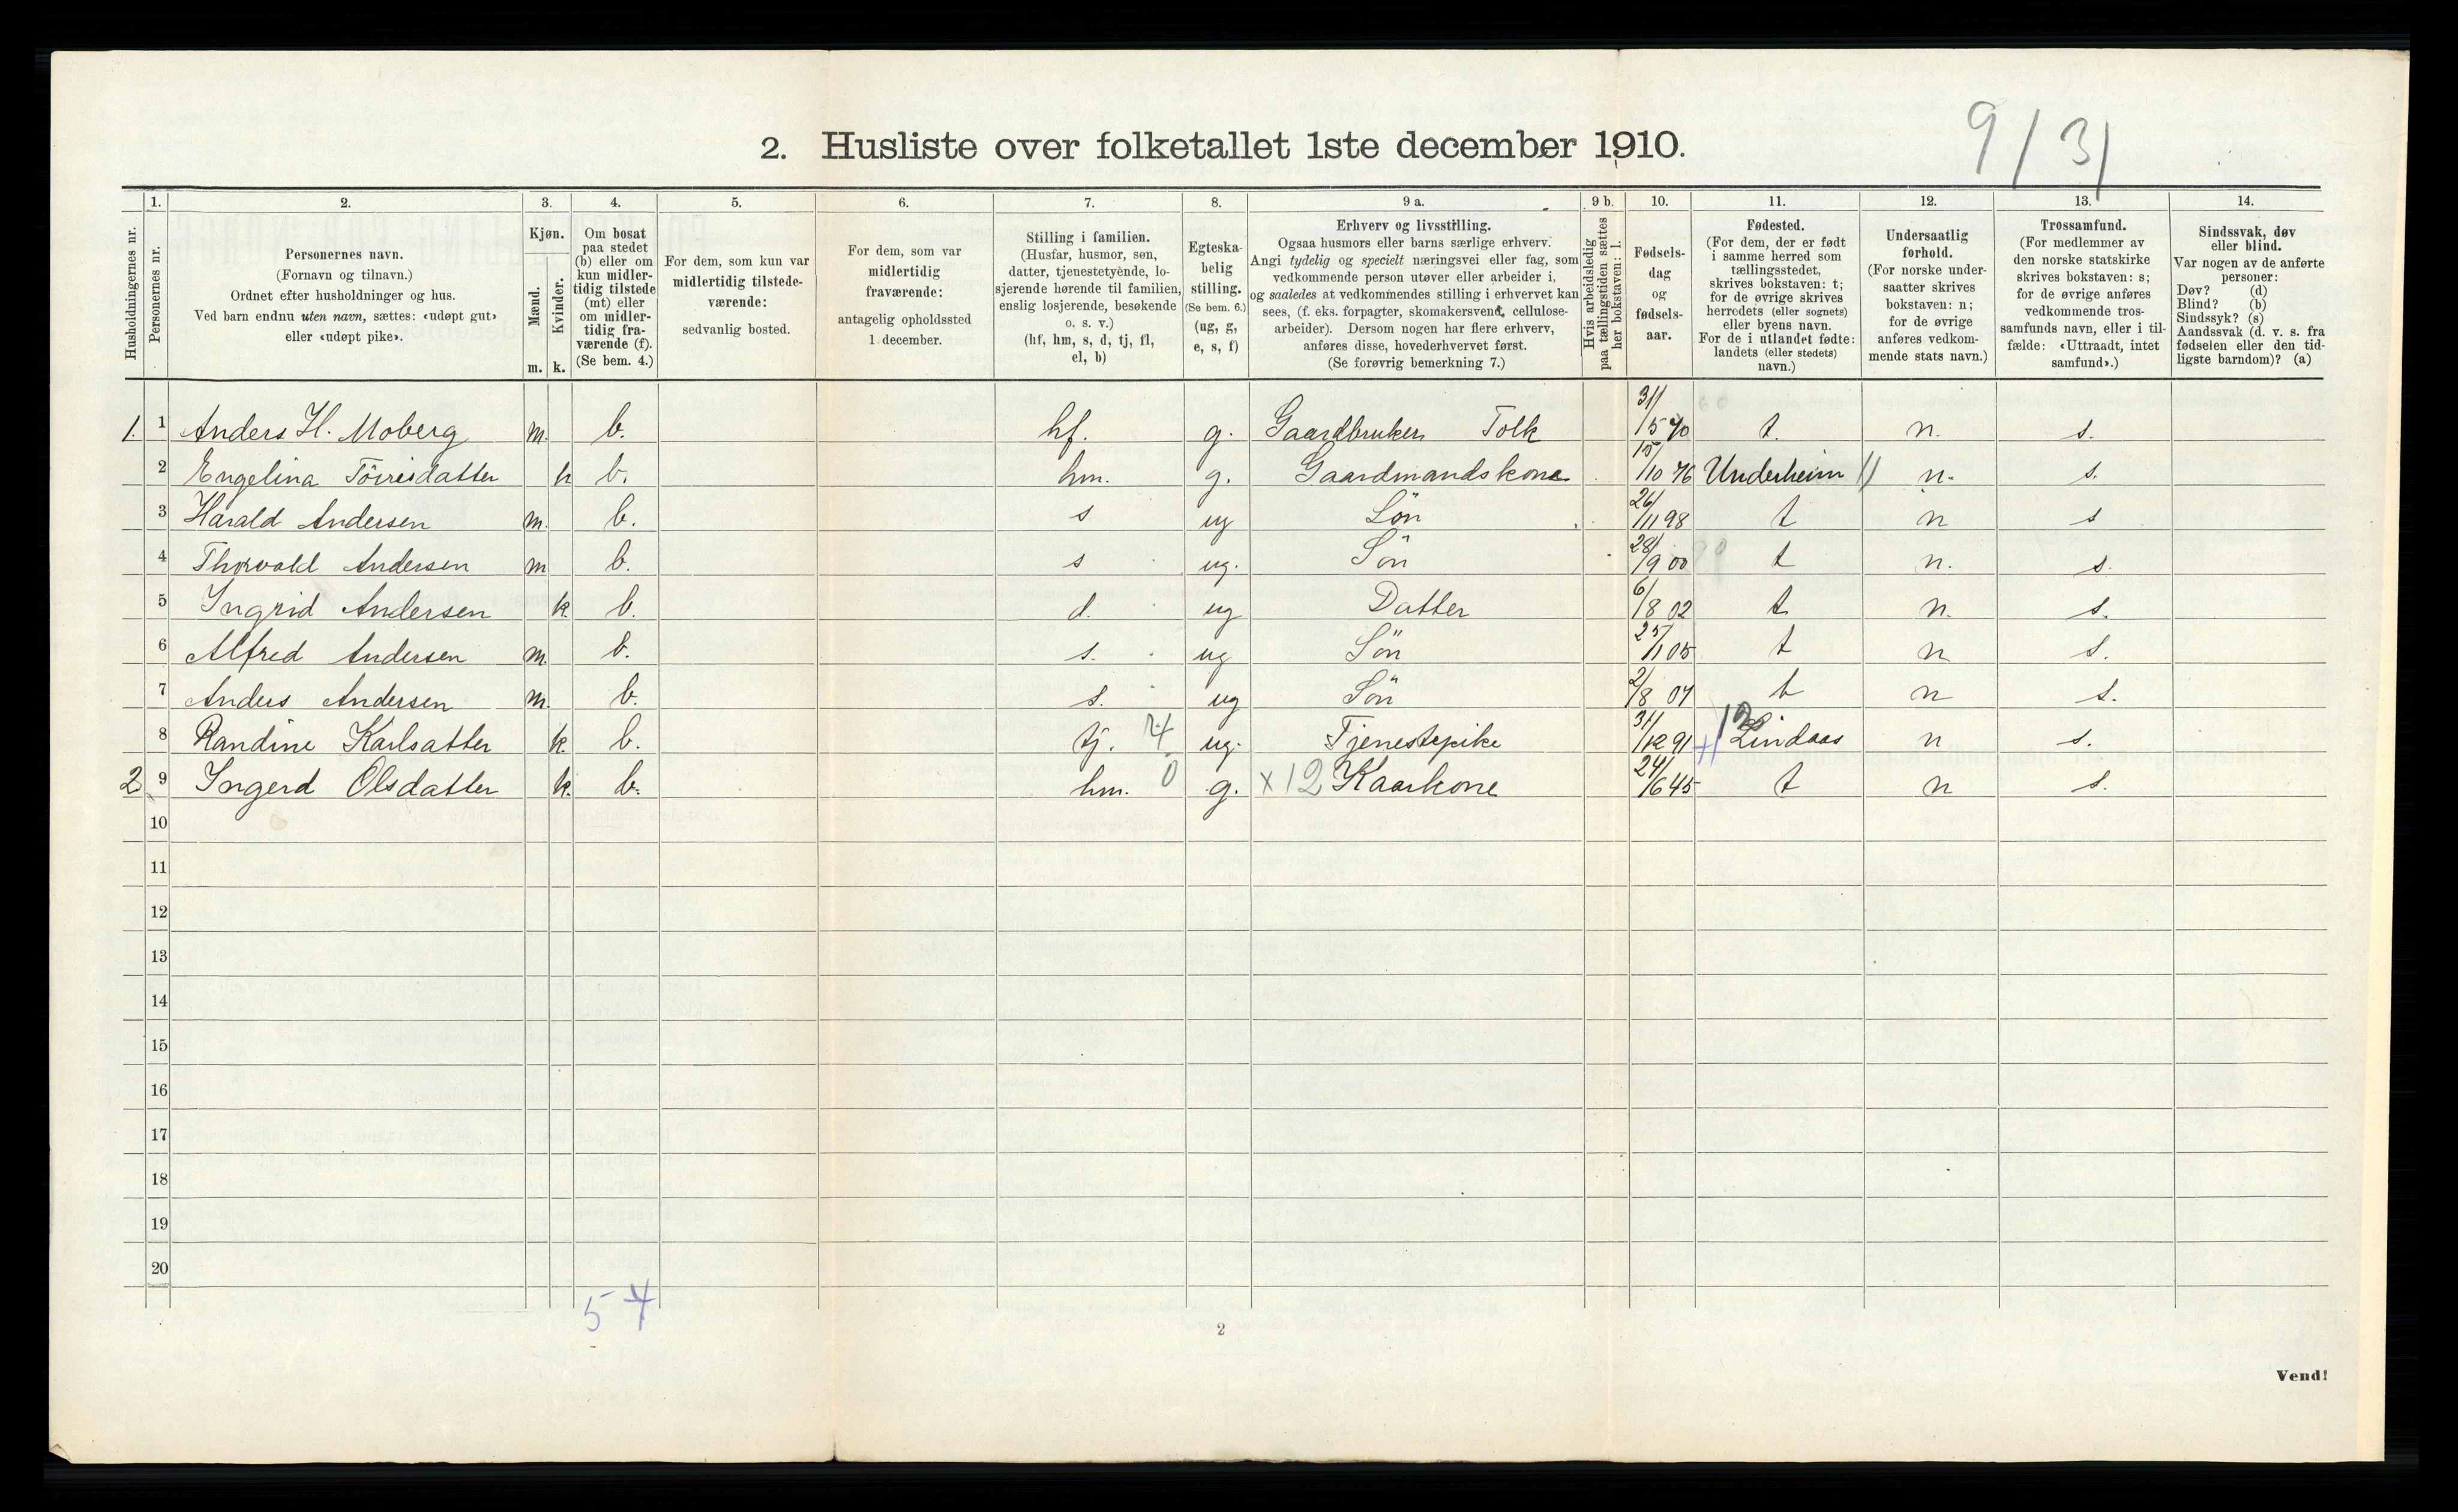 9/3/
2. Husliste over folketallet 1ste december 1910.
Husholdningernes nr.
1.
Personernes nr.
2.
Personernes navn.
(Fornavn og tilnavn.)
Ordnet efter husholdninger og hus.
Ved barn endnu uten navn, sættes: «udøpt gut»
eller «udøpt pike».
3.
Kjøn.
Mænd.
Kvinder.
m. k.
4.
Om bosat
paa stedet
(b) eller om
kun midler-
tidig tilstede
(mt) eller
om midler-
tidig fra-
værende (f).
(Se bem. 4.)
5.
For dem, som kun var
midlertidig tilstede-
værende:
sedvanlig bosted.
6.
For dem, som var
midlertidig
fraværende:
antagelig opholdssted
1 december.
7.
Stilling i familien.
(Husfar, husmor, søn,
datter, tjenestetyende, lo-
sjerende hørende til familien,
enslig losjerende, besøkende
o. s. v.)
(hf, hm, s, d, tj, fl,
el, b)
8.
Egteska-
belig
stilling.
(Se bem. 6.)
(ug, g,
e, s, f)
9 a.
Erhverv og livsstilling.
Ogsaa husmors eller barns særlige erhverv.
Angi tydelig og specielt næringsvei eller fag, som
vedkommende person utøver eller arbeider i,
og saaledes at vedkommendes stilling i erhvervet kan
sees, (f. eks. forpagter, skomakersvend, cellulose-
arbeider). Dersom nogen har flere erhverv,
anføres disse, hovederhvervet først.
(Se forøvrig bemerkning 7.)
9 b.
Hvis arbeidsledig
paa tællingstiden sættes
her bokstaven: l.
10.
Fødsels-
dag
og
fødsels-
aar.
11.
Fødested.
(For dem, der er født
i samme herred som
tællingsstedet,
skrives bokstaven: t;
for de øvrige skrives
herredets (eller sognets)
eller byens navn.
For de i utlandet fødte:
landets (eller stedets)
navn.)
12.
Undersaatlig
forhold.
(For norske under-
saatter skrives
bokstaven: n;
for de øvrige
anføres vedkom-
mende stats navn.)
13.
Trossamfund.
(For medlemmer av
den norske statskirke
skrives bokstaven: s;
for de øvrige anføres
vedkommende tros-
samfunds navn, eller i til-
fælde: «Uttraadt, intet
samfund».)
14.
Sindssvak, døv
eller blind.
Var nogen av de anførte
personer:
Døv? (d)
Blind? (b)
Sindssyk? (s)
Aandssvak (d. v. s. fra
fødselen eller den tid-
ligste barndom)? (a)
1. 1 Anders H. Moberg m. b. hf. g. Gaardbruker Tolk 31/5 70 t. n. s.
2 Engelina k b. hm. g. Gaardmandskone 15/10 76 Underheim n. s.
3 Harald Andersen m. b. s ug Sön 26/11 98 t n s
4 Thorvald Andersen m b. s ug. Sön 28/9 00 t n. s.
5 Ingrid Andersen k. b. d. ug Datter 6/8 02 t n. s.
6 Alfred Andersen m. b. s. ug Sön 25/1 05 t n s.
7 Anders Andersen m. b. s. ug Sön 2/8 07 t n s.
8 Randine Karlsatter k. b. tj. 4 ug. Tjenestepike 31/12 91 Lindaas n s.
2 9 Ingerd Olsdatter k. b. hm. 0 g. x12 Kaarkone 24/6 45 t n s.
10
11
12
13
14
15
16
17
18
19
20
5 4
2
Vend!